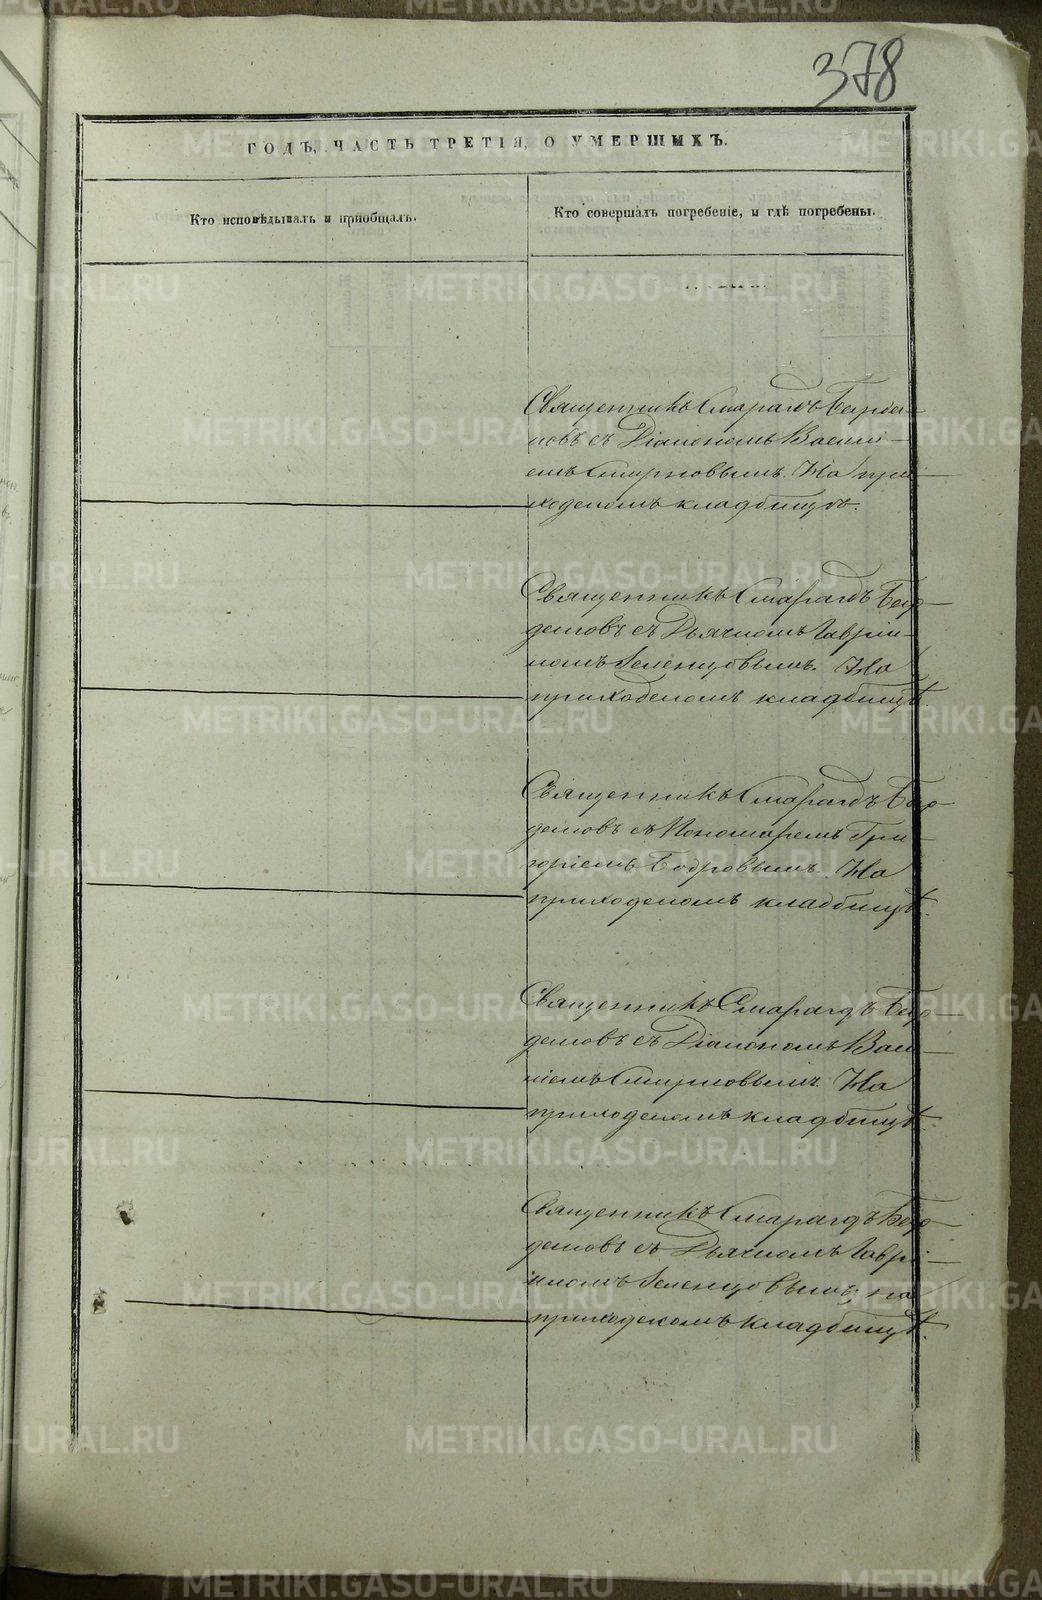 378
ГОДЪ, ЧАСТЬ ТРЕТІЯ, О УМЕРШИХЪ.
Кто исповѣдывалъ и пріобщалъ.
Кто совершалъ погребеніе, и гдѣ погребены.
Священникъ Смарагдъ
съ Діакономъ Васи-
емъ Смирновымъ. На при-
ходскомъ кладбищѣ.
Священникъ Смарагдъ Бир-
десовъ съ Дьячкомъ Гаврі-
ломъ Зеленцовымъ. На
приходскомъ кладбищѣ.
Священникъ Смарагдъ Бир-
десовъ съ Пономаремъ Гри-
горіемъ Бодровымъ. На
приходскомъ кладбищѣ.
Священникъ Смарагдъ Бир-
десовъ съ Діакономъ Васи-
ліемъ Смирновымъ. На
приходскомъ кладбищѣ.
Священникъ Смарагдъ Бир-
десовъ съ Дьячкомъ Гаврі-
иломъ Зеленцовымъ; на
приходскомъ кладбищѣ.
METRIKI.GASO-URAL.RU